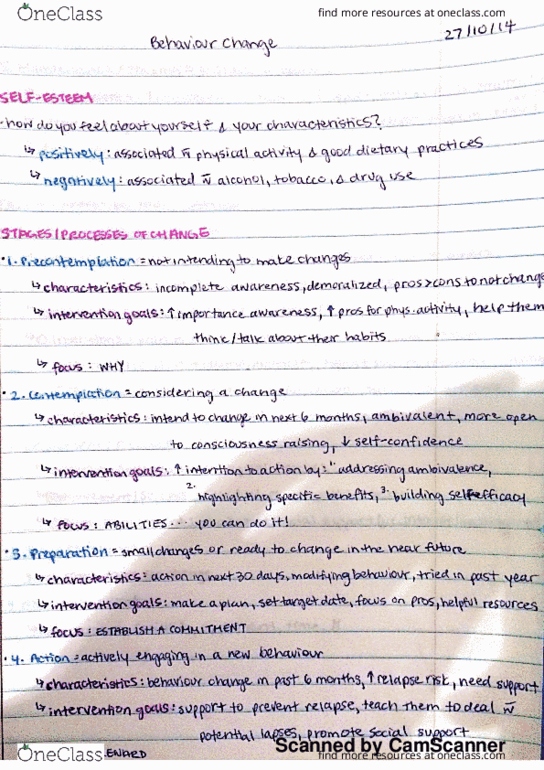 OneClass
find more resources at oneclass.com
27/10/14
Behaviour Change
SELF-ESTEEM
· how do you feel about yourself & your characteristics?
↳ positively: associated w̄ physical activity & good dietary practices
↳ negatively: associated w̄ alcohol, tobacco, & drug use
STAGES/PROCESSES OF CHANGE
• 1. Precontemplation = not intending to make changes
↳ characteristics: incomplete awareness, demoralized, pros > cons to not change
↳ intervention goals: ↑ importance awareness, ↑ pros for phys. activity, help them
think/talk about their habits
↳ focus: WHY
• 2. Contemplation = considering a change
↳ characteristics: intend to change in next 6 months, ambivalent, more open
to consciousness raising, ↓ self-confidence
↳ intervention goals: ↑ intention to action by: 1. addressing ambivalence,
2. highlighting specific benefits, 3. building self efficacy
↳ focus: ABILITIES... you can do it!
• 3. Preparation = small changes or ready to change in the near future
↳ characteristics: action in next 30 days, modifying behaviour, tried in past year
↳ intervention goals: make a plan, set target date, focus on pros, helpful resources
↳ focus: ESTABLISH A COMMITMENT
• 4. Action = actively engaging in a new behaviour
↳ characteristics: behaviour change in past 6 months, ↑ relapse risk, need support
↳ intervention goals: support to prevent relapse, teach them to deal w̄
potential lapses, promote social support
Scanned by CamScanner
OneClass
find more resources at oneclass.com